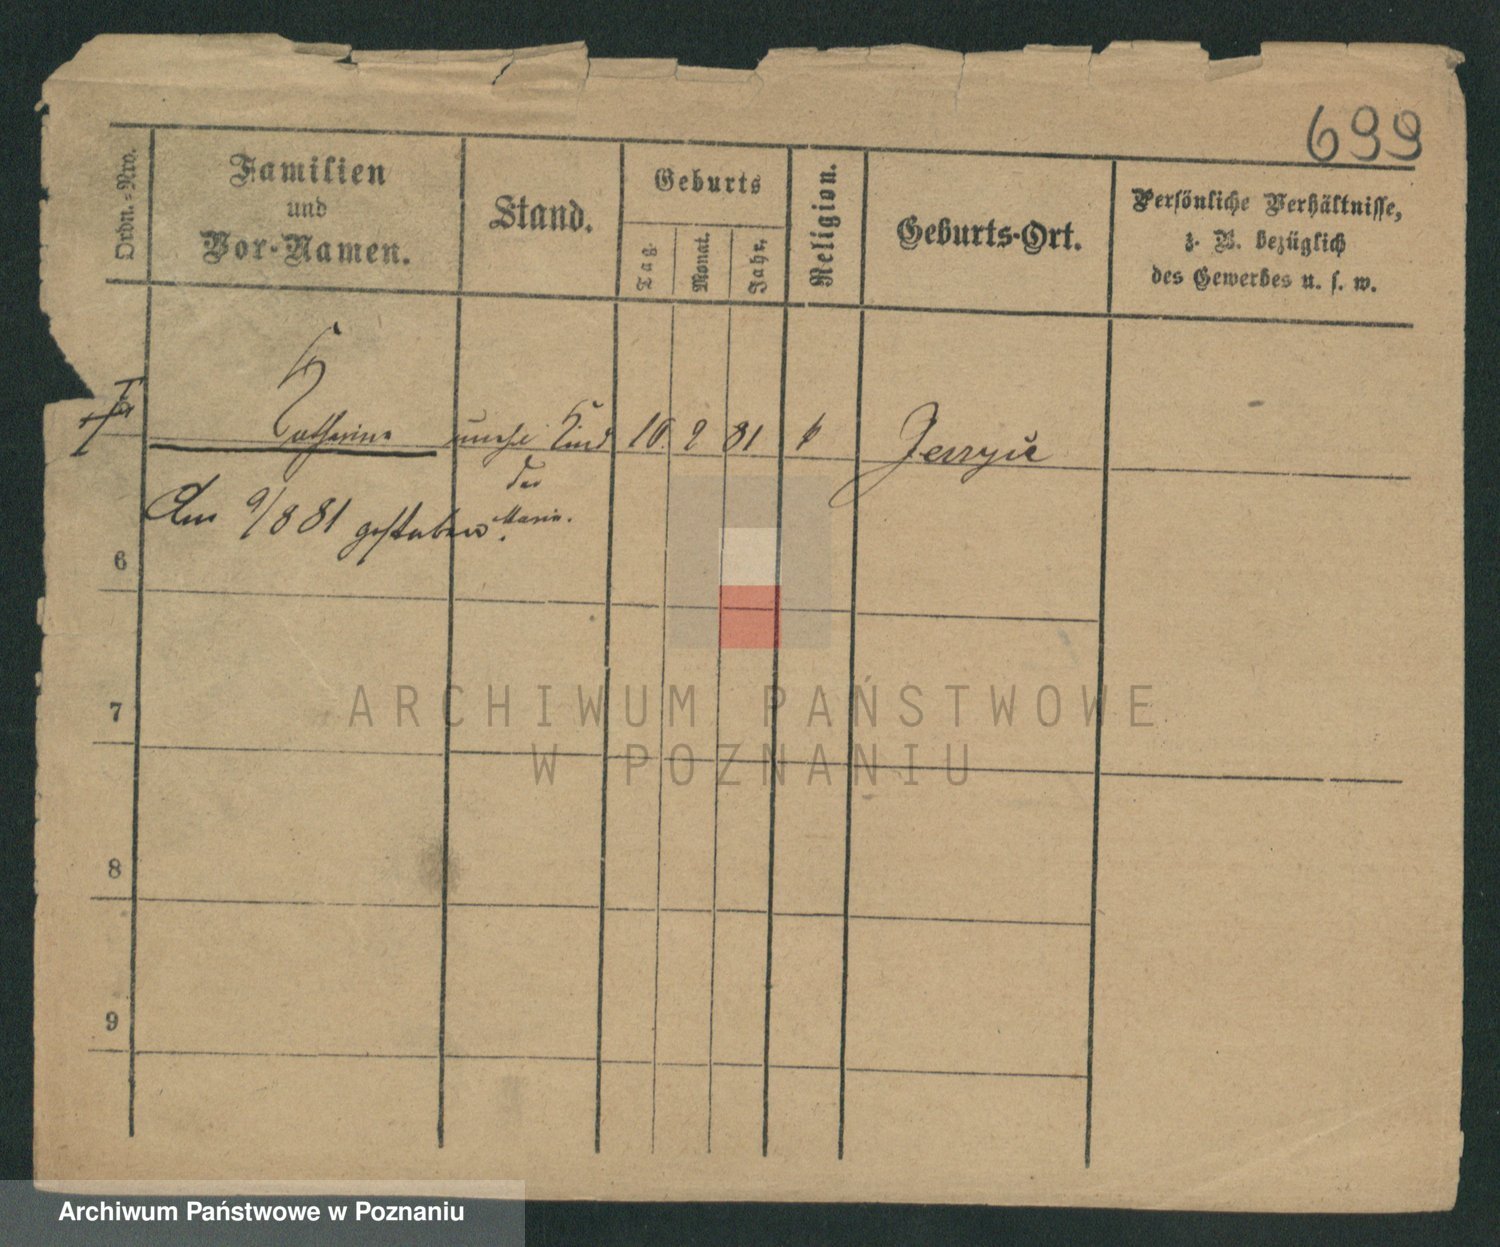 699
Ordn.-Nro.
Familien
und
Vor-Namen.
Stand.
Geburts
Tag.
Monat.
Jahr.
Religion.
Geburts-Ort.
Persönliche Verhältnisse,
z. B. bezüglich
des Gewerbes u. s. w.
5 Catharina Kind 10. 2 81 k
des
Marie.
Am 9/8 81 gestorben.
6
7
ARCHIWUM PAŃSTWOWE
W POZNANIU
8
9
Archiwum Państwowe w Poznaniu